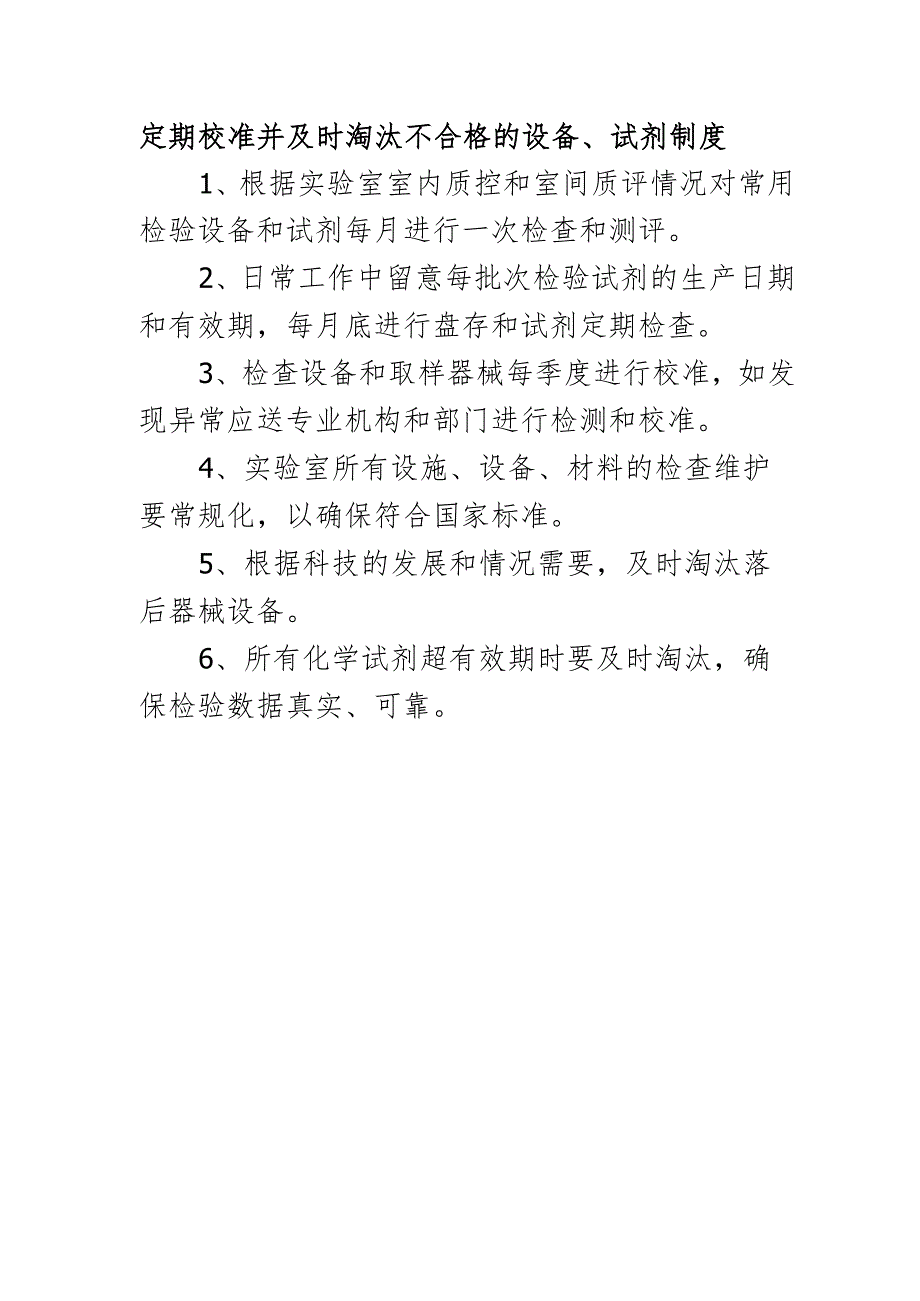 定期校准并及时淘汰不合格的设备、试剂制度
1、根据实验室室内质控和室间质评情况对常用
检验设备和试剂每月进行一次检查和测评。
2、日常工作中留意每批次检验试剂的生产日期
和有效期，每月底进行盘存和试剂定期检查。
3、检查设备和取样器械每季度进行校准，如发
现异常应送专业机构和部门进行检测和校准。
4、实验室所有设施、设备、材料的检查维护
要常规化，以确保符合国家标准。
5、根据科技的发展和情况需要，及时淘汰落
后器械设备。
6、所有化学试剂超有效期时要及时淘汰，确
保检验数据真实、可靠。